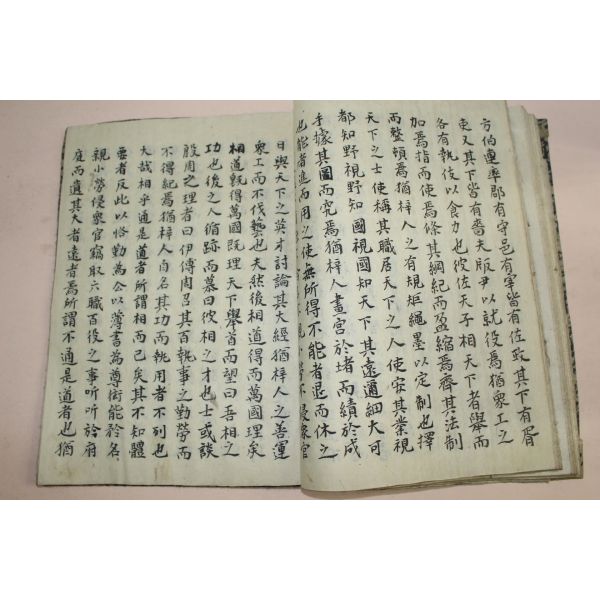 方伯連率郡有守邑有宰皆有佐政其下有胥
吏又其下皆有嗇夫版尹以就役焉猶衆工之
各有執伎以食力也彼佐天子相天下者舉而
加焉指而使焉條其綱紀而盈縮焉齊其法制
而整頓焉猶梓人之有規矩繩墨以定制也擇
天下之士使稱其職居天下之人使安其業視
都知野視野知國視國知天下其遠邇細大可
手據其圖而究焉猶梓人畫宮於堵而績於成
也能者進而用之使無所得不能者退而休之
日與天下之英才討論其大經猶梓人之善運
衆工而不伐藝也夫然後相道得而萬國理矣
相道旣得萬國旣理天下擧首而望曰吾相之
功也後之人循跡而慕曰彼相之才也士或談
殷周之理者曰伊傅周召其百執事之勤勞而
不得紀焉猶梓人自名其功而執用者不列也
大哉相乎通是道者所謂相而已矣其不知體
要者反此以恪勤爲公以薄書爲尊衒能矜名
親小勞侵衆官竊取六職百役之事听听於府
庭而遺其大者遠者焉所謂不通是道者也猶